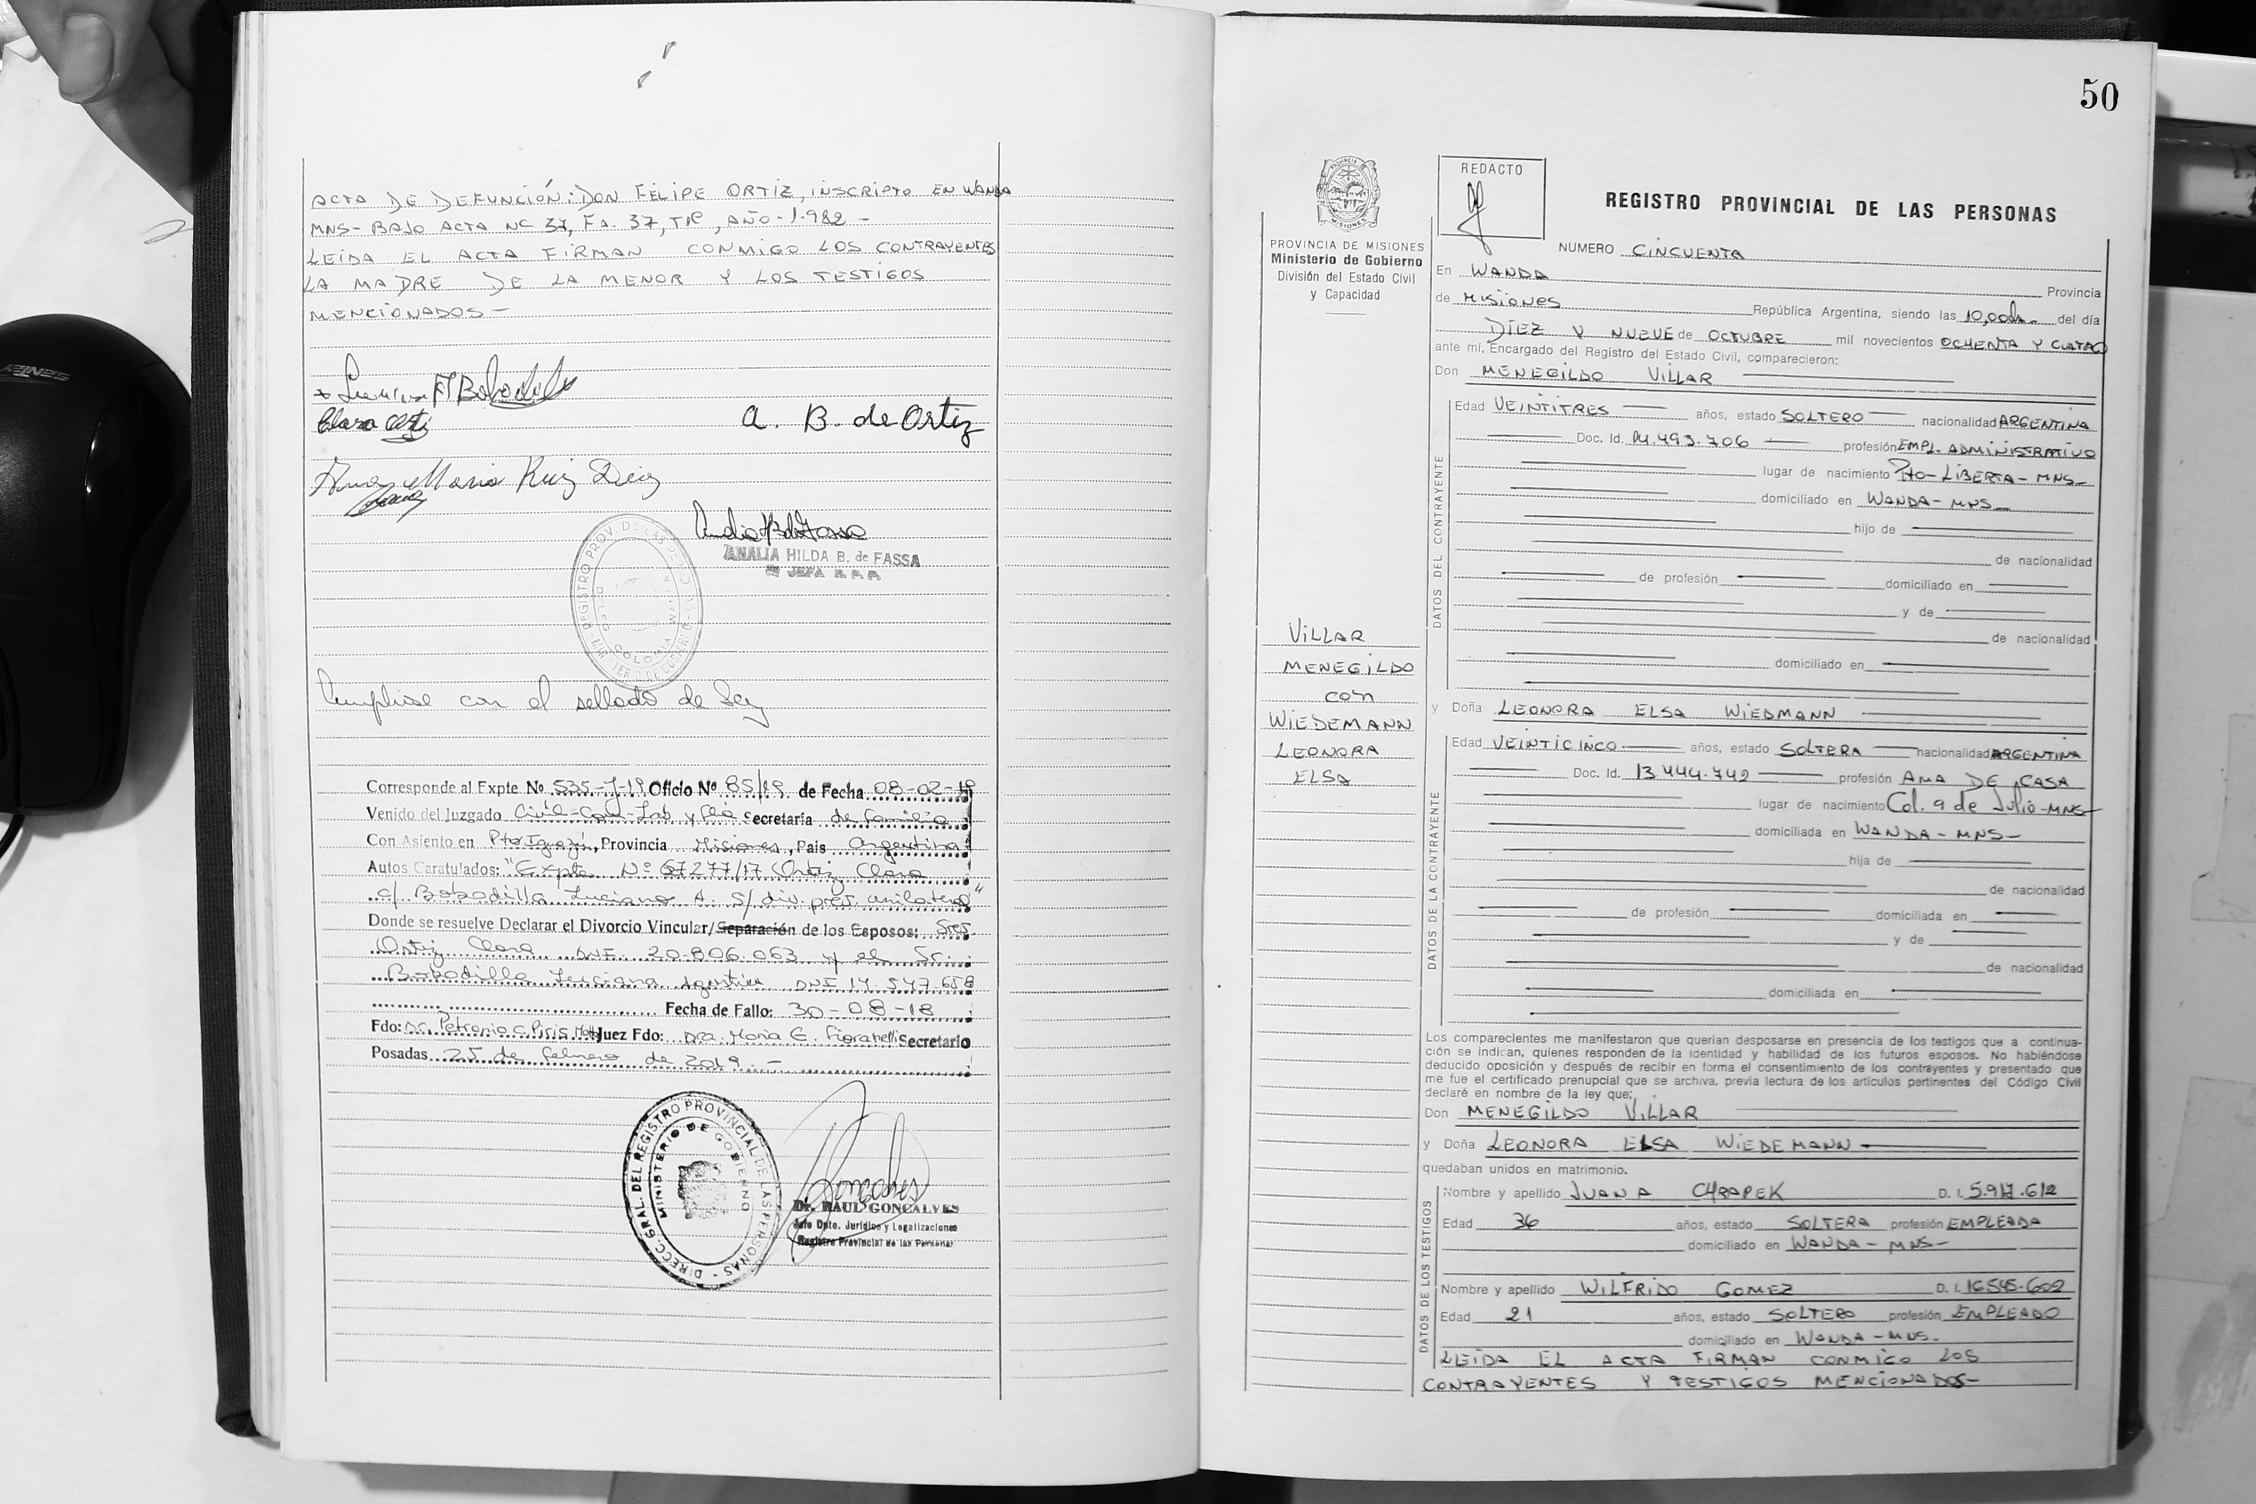 ACTA DE DEFUNCIÓN: DON FELIPE ORTIZ, INSCRIPTO EN WANDA
MNS- BAJO ACTA Nº 37, Fº. 37, Tº, AÑO-1.982-
LEIDA EL ACTA FIRMAN CONMIGO LOS CONTRAYENTES
LA MADRE DE LA MENOR Y LOS TESTIGOS
MENCIONADOS-
Clara Ortiz
A. B. de Ortiz
Maria Ruiz Diaz
ANALIA HILDA B. de FASSA
JEFA R.P.P.
Cumplise con el sellado de Ley
Corresponde al Expte Nº 535-J-19 Oficio Nº 85/19 de Fecha 08-02-19
Venido del Juzgado Civil-Com-Lab y Flia Secretaría de familia
Con Asiento en Pto Iguazú, Provincia Misiones, Pais Argentina
Autos Caratulados: "Expte Nº 67277/17 Ortiz Clara
c/ Bobadilla Luciano A. S/ div. pres. unilateral"
Donde se resuelve Declarar el Divorcio Vincular/Separación de los Esposos: Sres
Ortiz Clara DNI 20.806.063 y el Sr.
Bobadilla Luciano Agustin DNI 14.547.658
Fecha de Fallo: 30-08-18
Fdo: Dr. Petronio C. Piris Juez Fdo: Dra. Maria E. Fioranelli Secretario
Posadas 25 de febrero de 2019-
DIRECC. GRAL. DEL REGISTRO PROVINCIAL DE LAS PERSONAS
MINISTERIO DE GOBIERNO
Dr. RAUL GONCALVES
Jefe Dpto. Jurídico y Legalizaciones
Registro Provincial de las Personas
50
REDACTO
MISIONES
REGISTRO PROVINCIAL DE LAS PERSONAS
PROVINCIA DE MISIONES
Ministerio de Gobierno
División del Estado Civil
y Capacidad
NUMERO CINCUENTA
En WANDA Provincia
de MISIONES República Argentina, siendo las 10,00 del día
DIEZ Y NUEVE de OCTUBRE mil novecientos OCHENTA Y CUATRO
ante mí, Encargado del Registro del Estado Civil, comparecieron:
Don MENEGILDO VILLAR
DATOS DEL CONTRAYENTE
Edad VEINTITRES años, estado SOLTERO nacionalidad ARGENTINA
Doc. Id. 14.493.706 profesión EMPL. ADMINISTRATIVO
lugar de nacimiento Pto-LIBERTA-MNS-
domiciliado en WANDA-MNS-
hijo de
de nacionalidad
de profesión domiciliado en
y de
de nacionalidad
domiciliado en
VILLAR
MENEGILDO
con
WIEDEMANN
LEONORA
ELSA
y Doña LEONORA ELSA WIEDMANN
DATOS DE LA CONTRAYENTE
Edad VEINTICINCO años, estado SOLTERA nacionalidad ARGENTINA
Doc. Id. 13.444.742 profesión AMA DE CASA
lugar de nacimiento Col. 9 de Julio-MNS-
domiciliada en WANDA-MNS-
hija de
de nacionalidad
de profesión domiciliada en
y de
de nacionalidad
domiciliada en
Los comparecientes me manifestaron que querían desposarse en presencia de los testigos que a continua-
ción se indican, quienes responden de la identidad y habilidad de los futuros esposos. No habiéndose
deducido oposición y después de recibir en forma el consentimiento de los contrayentes y presentado que
me fue el certificado prenupcial que se archiva, previa lectura de los artículos pertinentes del Código Civil
declaré en nombre de la ley que:
Don MENEGILDO VILLAR
y Doña LEONORA ELSA WIEDEMANN
quedaban unidos en matrimonio.
DATOS DE LOS TESTIGOS
Nombre y apellido JUANA CHRAPEK D. I. 5.917.612
Edad 36 años, estado SOLTERA profesión EMPLEADA
domiciliado en WANDA-MNS-
Nombre y apellido WILFRIDO GOMEZ D. I. 16.545.602
Edad 21 años, estado SOLTERO profesión EMPLEADO
domiciliado en WANDA-MNS-
LEIDA EL ACTA FIRMAN CONMIGO LOS
CONTRAYENTES Y TESTIGOS MENCIONADOS-